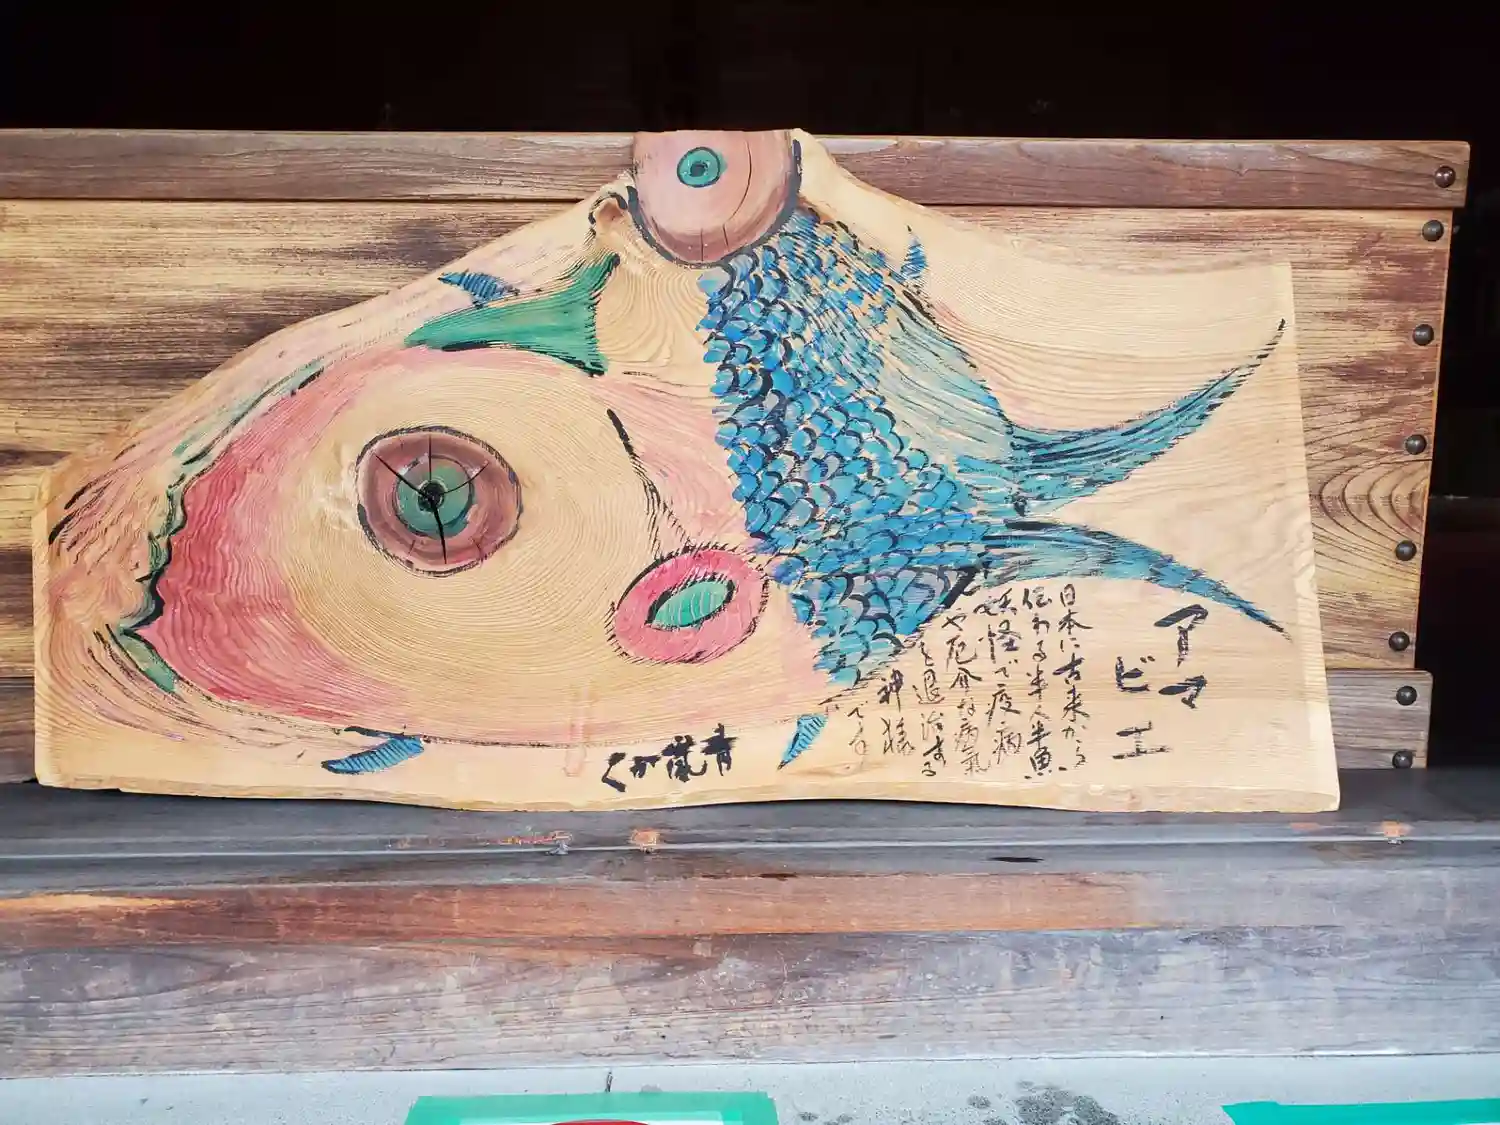 アマ
ビエ
日本に古来から
伝わる半人半魚
妖怪で疫病
や厄介な病気
を退治する
神様
です
青嵐が
く